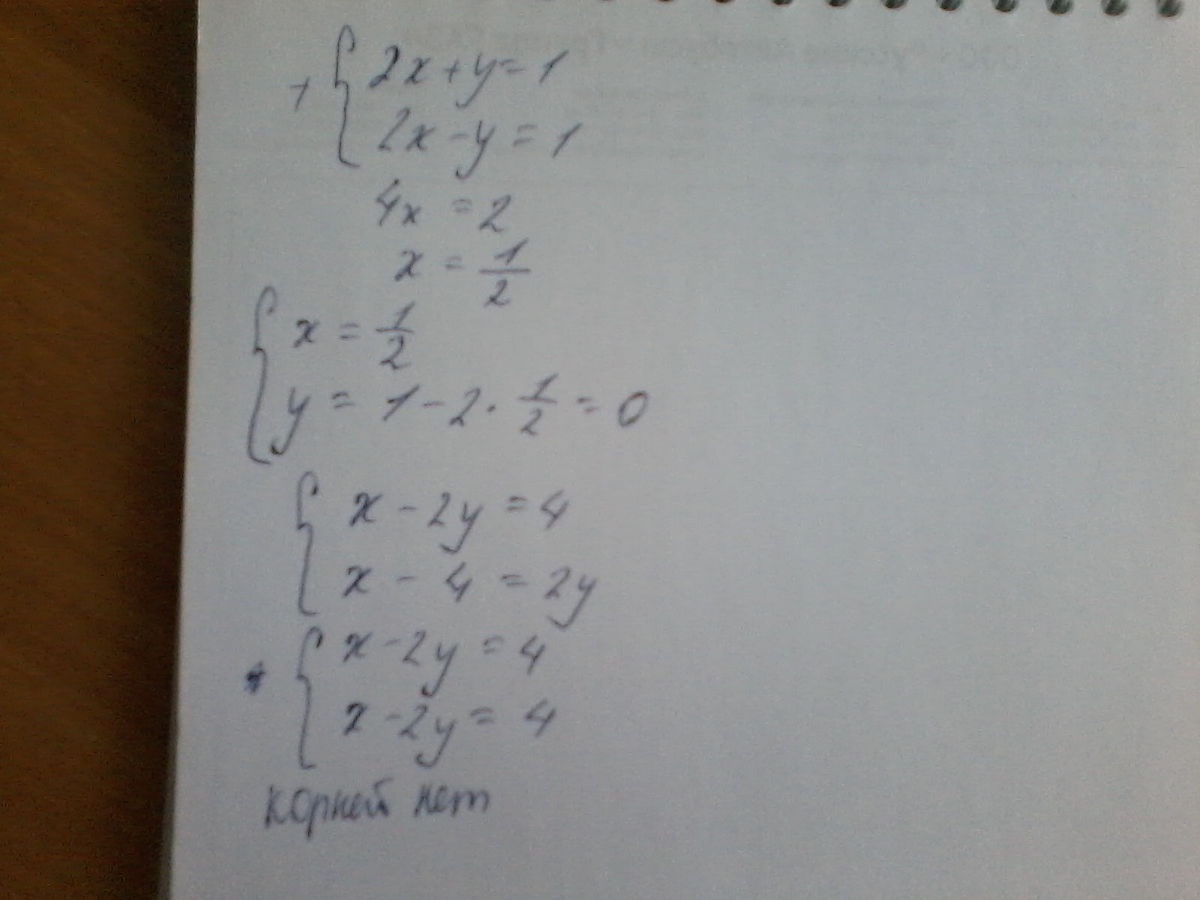 + { 2x+y=1
2x-y=1
4x=2
x=1/2
{ x=1/2
y=1-2·1/2=0
{ x-2y=4
x-4=2y
{ x-2y=4
x-2y=4
корней нет